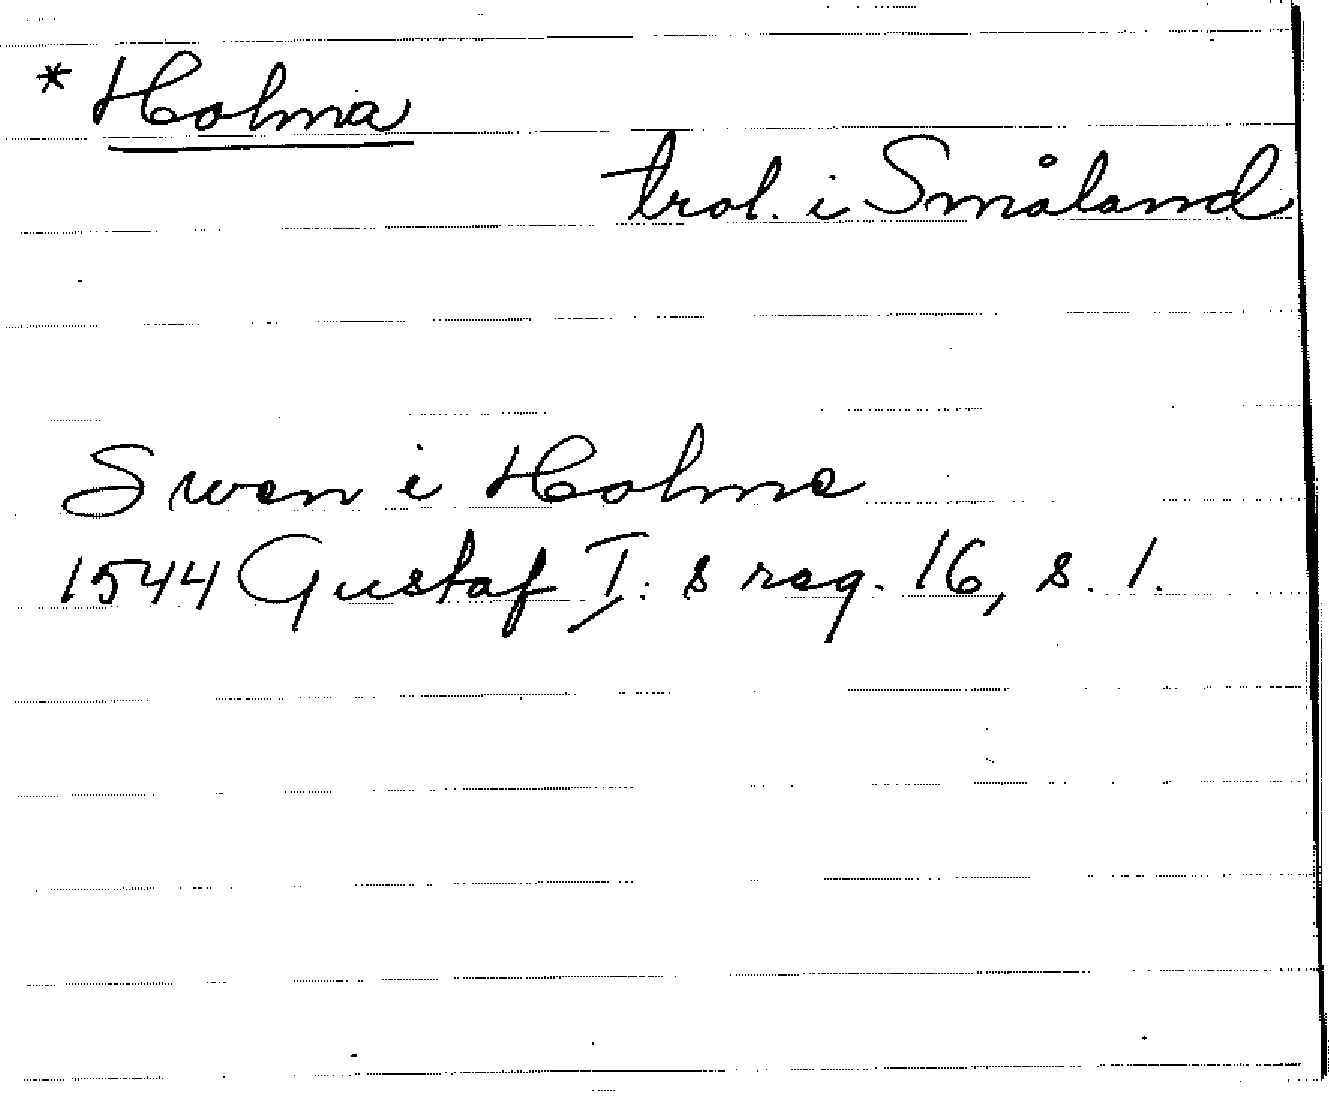 * Holma
trol. i Småland
Swen i Holme
1544 Gustaf I: s reg. 16, s. 1.